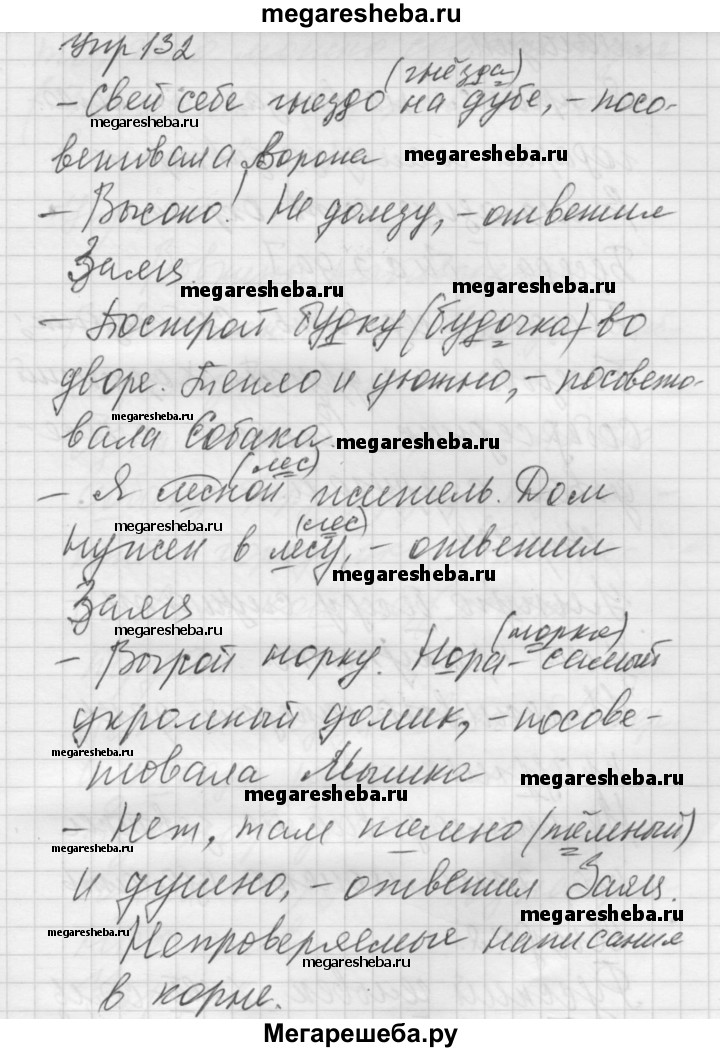 megaresheba.ru
Упр 132
(гнёзда)
– Свей себе гнездо на дубе, – посо-
megaresheba.ru
ветовала Ворона
megaresheba.ru
– Высоко! Не долезу, – ответил
Заяц.
megaresheba.ru
megaresheba.ru
– Построй будку (будочка) во
дворе. Тепло и уютно, – посовето-
megaresheba.ru
вала Собака.
megaresheba.ru
(лес)
– Я лесной житель. Дом
megaresheba.ru
(лес)
нужен в лесу, – ответил
megaresheba.ru
Заяц
megaresheba.ru
(норка)
– Вырой норку. Нора – самый
укромный домик, – посове-
megaresheba.ru
товала Мышка
megaresheba.ru
megaresheba.ru
– Нет, там темно (тёмный)
megaresheba.ru
и душно, – ответил Заяц.
megaresheba.ru
Непроверяемые написания
megaresheba.ru
в корне.
Мегарешеба.ру